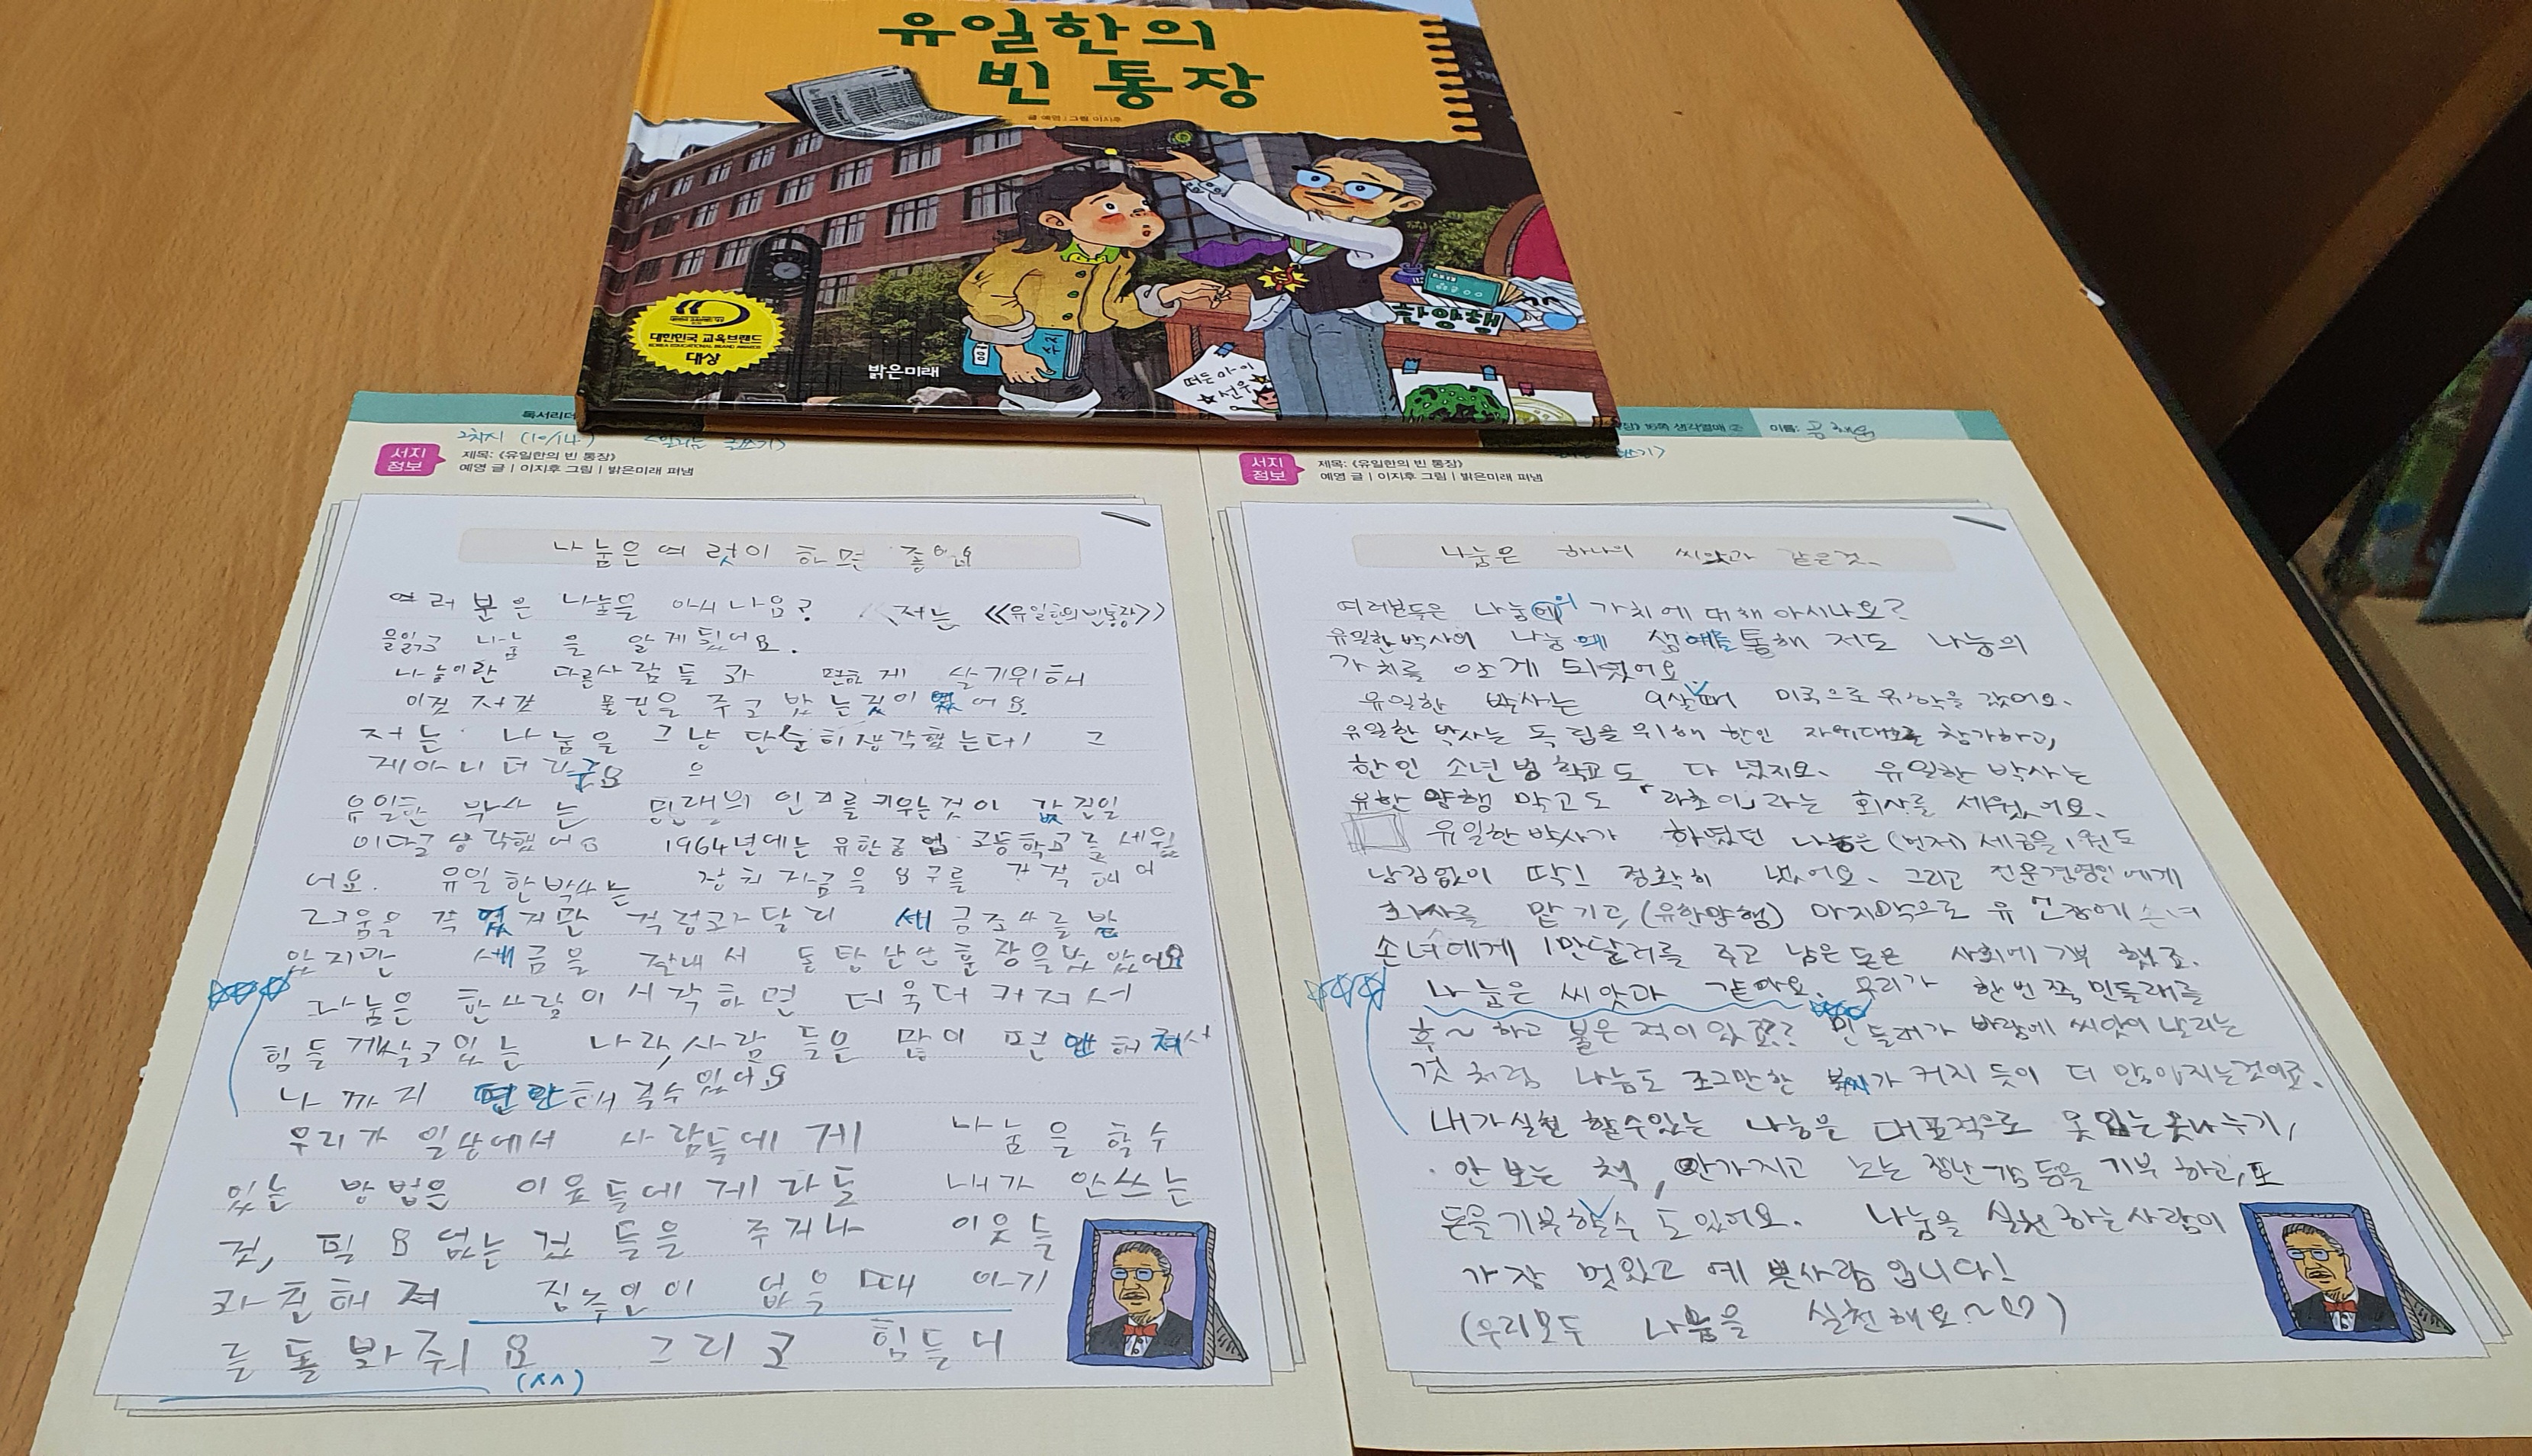 유일한의
빈 통장
글 예영 | 그림 이지후
한양행
대한민국 교육브랜드
대상
밝은미래
떠든 아이
선우
독서리더
2차시 (10/14)
서지
정보
제목: 《유일한의 빈 통장》
예영 글 | 이지후 그림 | 밝은미래 펴냄
나눔은 여럿이 하면 좋아요
여러분은 나눔을 아시나요? 저는 《유일한의 빈통장》
을읽고 나눔을 알게됬어요.
나눔이란 다른사람들과 편하게 살기위해
이것 저것 물건을 주고 받는것이였어요.
저는 나눔을 그냥 단순히생각했는데 그
게아니더라구요
유일한 박사는 미래의 인재를 키우는것이 값진일
이다고생각했어요 1964년에는 유한공업 고등학교를 세웠
어요. 유일한박사는 정치자금을 요구를 거절해 어
려움을 겪었지만 걱정과달리 세금조사를 받
았지만 세금을 잘내서 동탑산업훈장을받았어요
나눔은 한사람이 시작하면 더욱더 커져서
힘들게살고있는 나라,사람들은 많이 편안해져서
나까지 편안해질수있어요
우리가 일상에서 사람들에게 나눔을 할수
있는 방법은 이웃들에게라도 내가 안쓰는
것, 필요없는 것들을 주거나 이웃들
과친해져 집주인이 없을때 아기
를 돌봐줘요 그리고 힘들더
(^^)
16쪽 생각열매 ② 이름:
쓰기>
서지
정보
제목: 《유일한의 빈 통장》
예영 글 | 이지후 그림 | 밝은미래 펴냄
나눔은 하나의 씨앗과 같은것.
여러분들은 나눔의 가치에 대해 아시나요?
유일한박사의 나눔 생애를통해 저도 나눔의
가치를 알게 되었어요.
유일한 박사는 9살때 미국으로유학을 갔어요.
유일한 박사는 독립을 위해 한인 자위대를 참가하고,
한인 소년병학교도 다녔지요. 유일한 박사는
유한양행 말고도 「라초이」라는 회사를 세웠어요.
유일한박사가 하였던 나눔은 (먼저) 세금을 1원도
남김없이 딱! 정확히 냈어요. 그리고 전문경영인에게
회사를 맡기고, (유한양행) 마지막으로 유언장에 손녀
손녀에게 1만달러를 주고 남은 돈은 사회에 기부 했죠.
나눔은 씨앗과 같아요. 우리가 한번쯤 민들래를
후~ 하고 불은 적이 있죠? 민들레가 바람에 씨앗이 날리는
것처럼 나눔도 조그만한 불씨가 커지듯이 더 많아지는것이죠.
내가실천 할수있는 나눔은 대표적으로 옷 나누기,
안 보는 책, 안가지고 노는 장난감 등을 기부 하고, 또
돈을 기부할수 도 있어요. 나눔을 실천 하는사람이
가장 멋있고 예쁜사람 입니다!
(우리모두 나눔을 실천해요~♡)